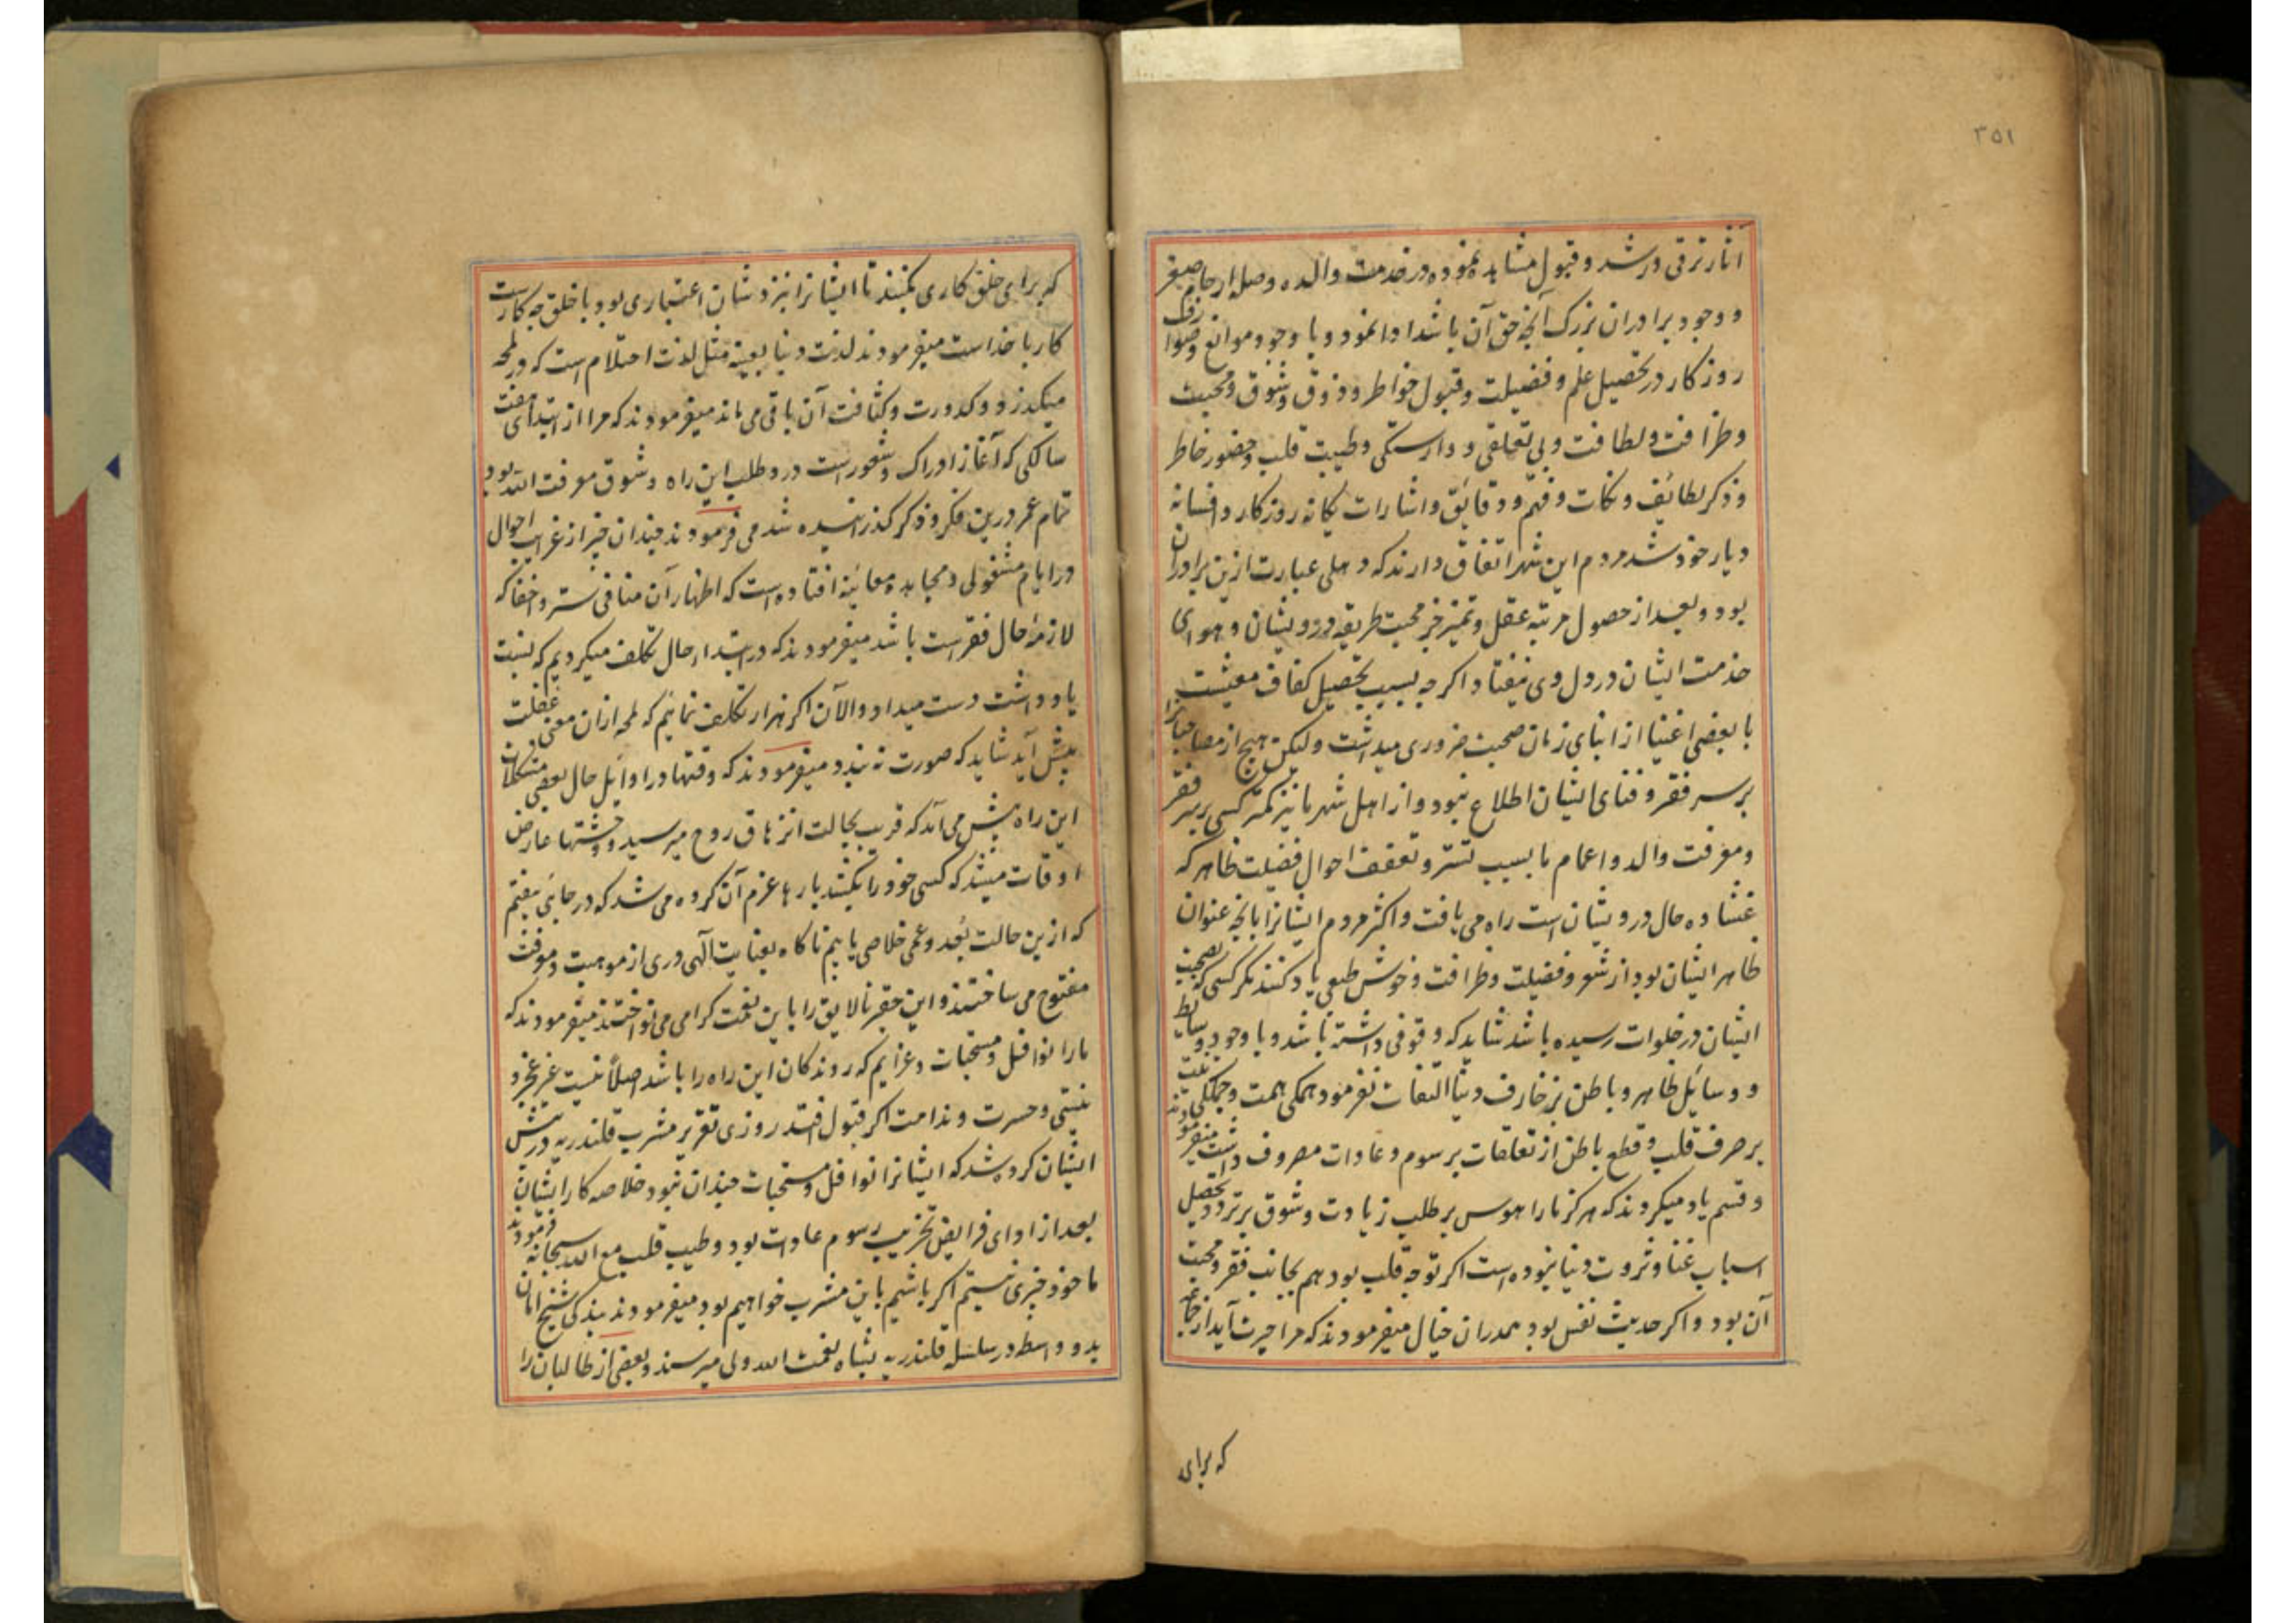 ۳۵۱
آثار ترقی و رشد و قبول مشاهده نموده در خدمت والده و صله ارحام صغر
و وجود برادران بزرگ آنچه حق آن باشد ادا نمود و با وجود موانع و صوارف
روزکار در تحصیل علم و فضیلت و قبول خواطر و ذوق و شوق و محبت
و ظرافت و لطافت و بی تعلقی و وارستکی و طیبت قلب و حضور خاطر
و ذکر لطائف و نکات و فهم و دقایق و اشارات یکانه روزکار و افسانه
دیار خود شد مردم این شهر اتفاق دارند که دهلی عبارت ازین برادران
بود و بعد از حصول مرتبه عقل و تمیز جز محبت طریقه درویشان و هوای
خدمت ایشان در دل وی نیفتاد اکرچه بسبب تحصیل کفاف معیشت
با بعضی اغنیا از ابنای زمان صحبت ضروری میداشت ولیکن هیچ از مصاحبانرا
بر سر فقر و فنای ایشان اطلاع نبود و از اهل شهر ما نیز کمتر کسی بر سر فقر
و معرفت والد و اعمام ما بسبب تستر و تعفف احوال فضیلت ظاهر که
غشاوه حال درویشان است راه می یافت و اکثر مردم ایشانرا بانچه عنوان
ظاهر ایشان بود از شعر و فضیلت و ظرافت و خوش طبعی یاد کنند مکر کسی که بصحبت
ایشان در خلوات رسیده باشد شاید که وقوفی داشته باشد و با وجود وسایط
و وسایل ظاهر و باطن بزخارف دنیا التفات نفرمود همکی همت و جملکی نیت
بر صرف قلب و قطع باطن از تعلقات برسوم و عادات مصروف داشت میفرمودند
و قسم یاد میکردند که هرکز ما را هوس بر طلب زیادت و شوق بر تردد تحصیل
اسباب غنا و ثروت دنیا نبوده است اکر توجه قلب بود هم بجانب فقر و محبت
آن بود و اکر حدیث نفس بود همدران خیال میفرمودند که مرا حیرت آید از
که برای
که برای خلق کاری بکنند تا ایشانرا نزد شان اعتباری بود با خلق چه کارست
کار با خداست میفرمودند لذت دنیا بعینه مثل لذت احتلام است که در لمحه
میکذرد و کدورت و کثافت آن باقی می ماند میفرمودند که مرا از ابتدای هفت
سالکی که آغاز ادراک و شعور است درد طلب این راه و شوق معرفت الله بود
تمام عمر درین فکر و ذکر کذرانیده شد می فرمودند چندان چیز از غرایب احوال
در ایام مشغولی و مجاهده معاینه افتاده است که اظهار آن منافی ستر و اخفا که
لازمه حال فقر است باشد میفرمودند که در ابتداء حال تکلف میکردیم که نسبت
یادداشت دست میداد و الآن اکر هزار تکلف نمائیم که لمحه ازان معنی غفلت
پیش آید شاید که صورت نه بندد میفرمودند که وقتها در اوایل حال بعضی مشکلات
این راه پیش می آمد که قریب بحالت انزهاق روح میرسید و وحشتها عارض
اوقات میشد که کسی خود را بکشد بارها عزم آن کرده می شد که در جائی بیفتیم
که ازین حالت بعد و عمی خلاصی یابیم ناکاه بعنایت آلهی دری از موهبت و موفقت
مفتوح می ساختند و این حقیر نالایق را باین نعمت کرامی می نواختند میفرمودند که
ما را نوافل و مستحبات و عزایم که روندکان این راه را باشد اصلاً نیست غیر عجز و
نیستی و حسرت و ندامت اکر قبول افتد روزی تقریر مشرب قلندریه در پیش
ایشان کرده شد که ایشانرا نوافل و مستحبات چندان نبود خلاصه کار ایشان
بعد از ادای فرایض تخریب رسوم عادات بود و طیب قلب مع الله سبحانه فرمودند
ما خود چیزی نیستیم اکر باشیم باین مشرب خواهیم بود میفرمودند بندکی شیخ امان
بدو واسطه در سلسله قلندریه بشاه نعمت الله ولی میرسند و بعضی از طالبان را